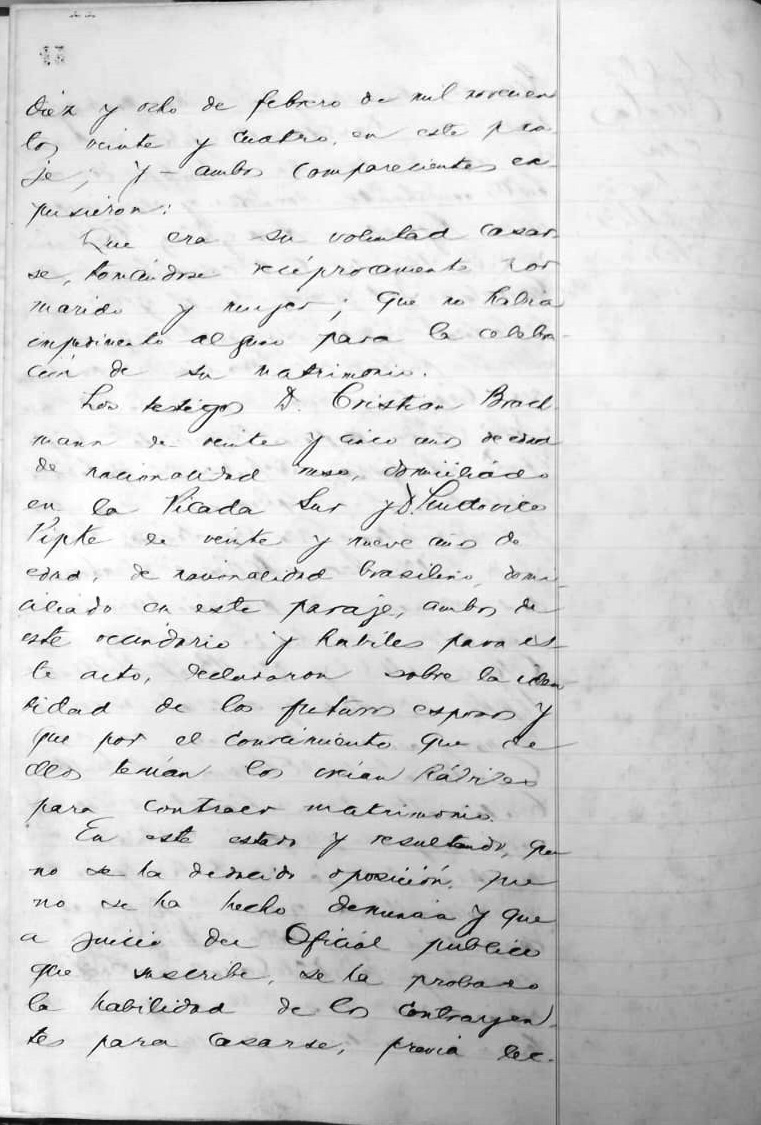 diez y ocho de febrero de mil novecien
tos veinte y cuatro, en este pra
je, y - ambos comparecientes ex-
pusieron:
Que era su voluntad casar
se, tomándose recíprocamente por
marido y mujer; que no había
impedimento alguno para la celebra-
ción de su matrimonio.
Los testigos D. Cristian Brach
mann de veinte y cinco años de edad
de nacionalidad ruso, domiciliado
en la Picada Sur y D. Ludovico
Pipke de veinte y nueve años de
edad, de nacionalidad brasilero, domi-
ciliado en este paraje, ambos de
este vecindario y habiles para es-
te acto, declararon sobre la iden
tidad de los futuros esposos y
que por el conocimiento que de
ellos tenían los creían hábiles
para contraer matrimonio.
En este estado y resultando, que
no se ha deducido oposición, que
no se ha hecho denuncia y que
a juicio del Oficial publico
que suscribe, se ha probado
la habilidad de los contrayen-
tes para casarse, previa lec-